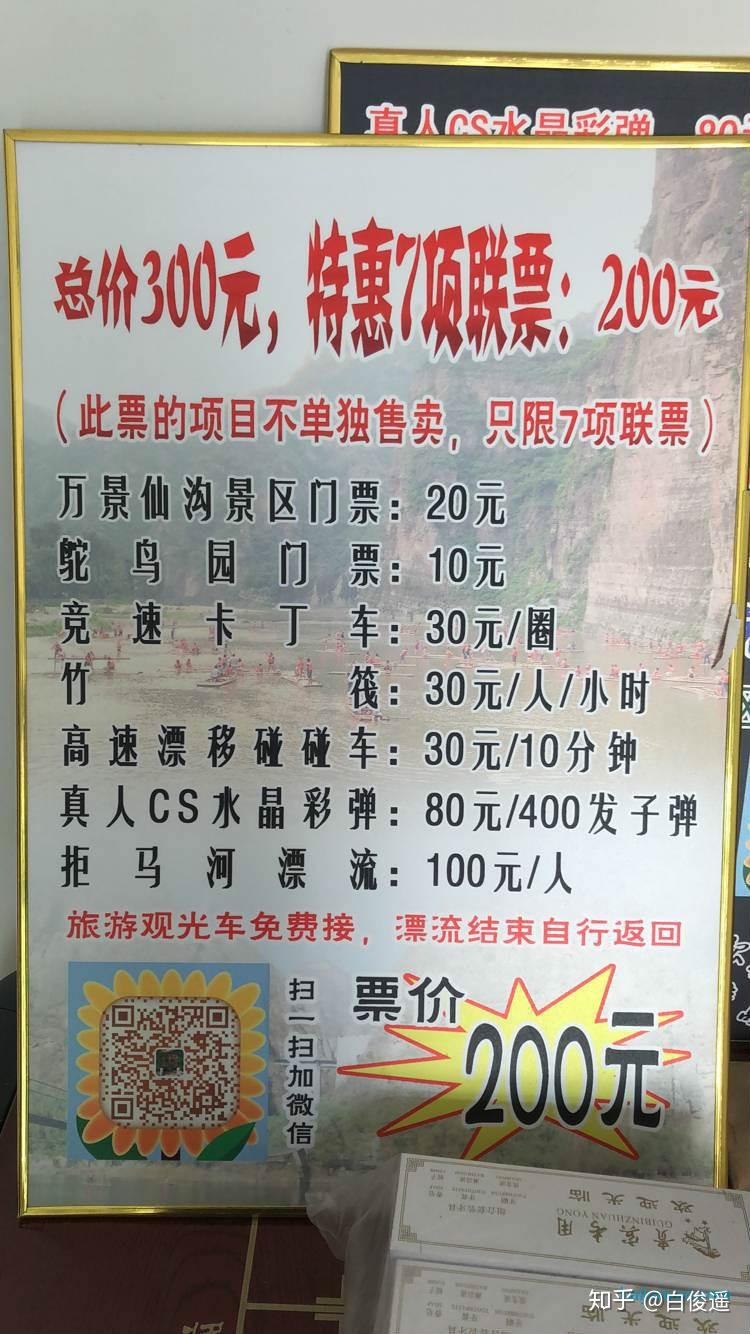 真人CS水晶彩弹 80
总价300元，特惠7项联票：200元
（此票的项目不单独售卖，只限7项联票）
万景仙沟景区门票：20元
鸵鸟园门票：10元
竞速卡丁车：30元/圈
竹筏：30元/人/小时
高速漂移碰碰车：30元/10分钟
真人CS水晶彩弹：80元/400发子弹
拒马河漂流：100元/人
旅游观光车免费接，漂流结束自行返回
扫一扫加微信
票价
200元
欢迎光临
贵宾专用
GUIBINZHUAN YONG
知乎 @白俊遥